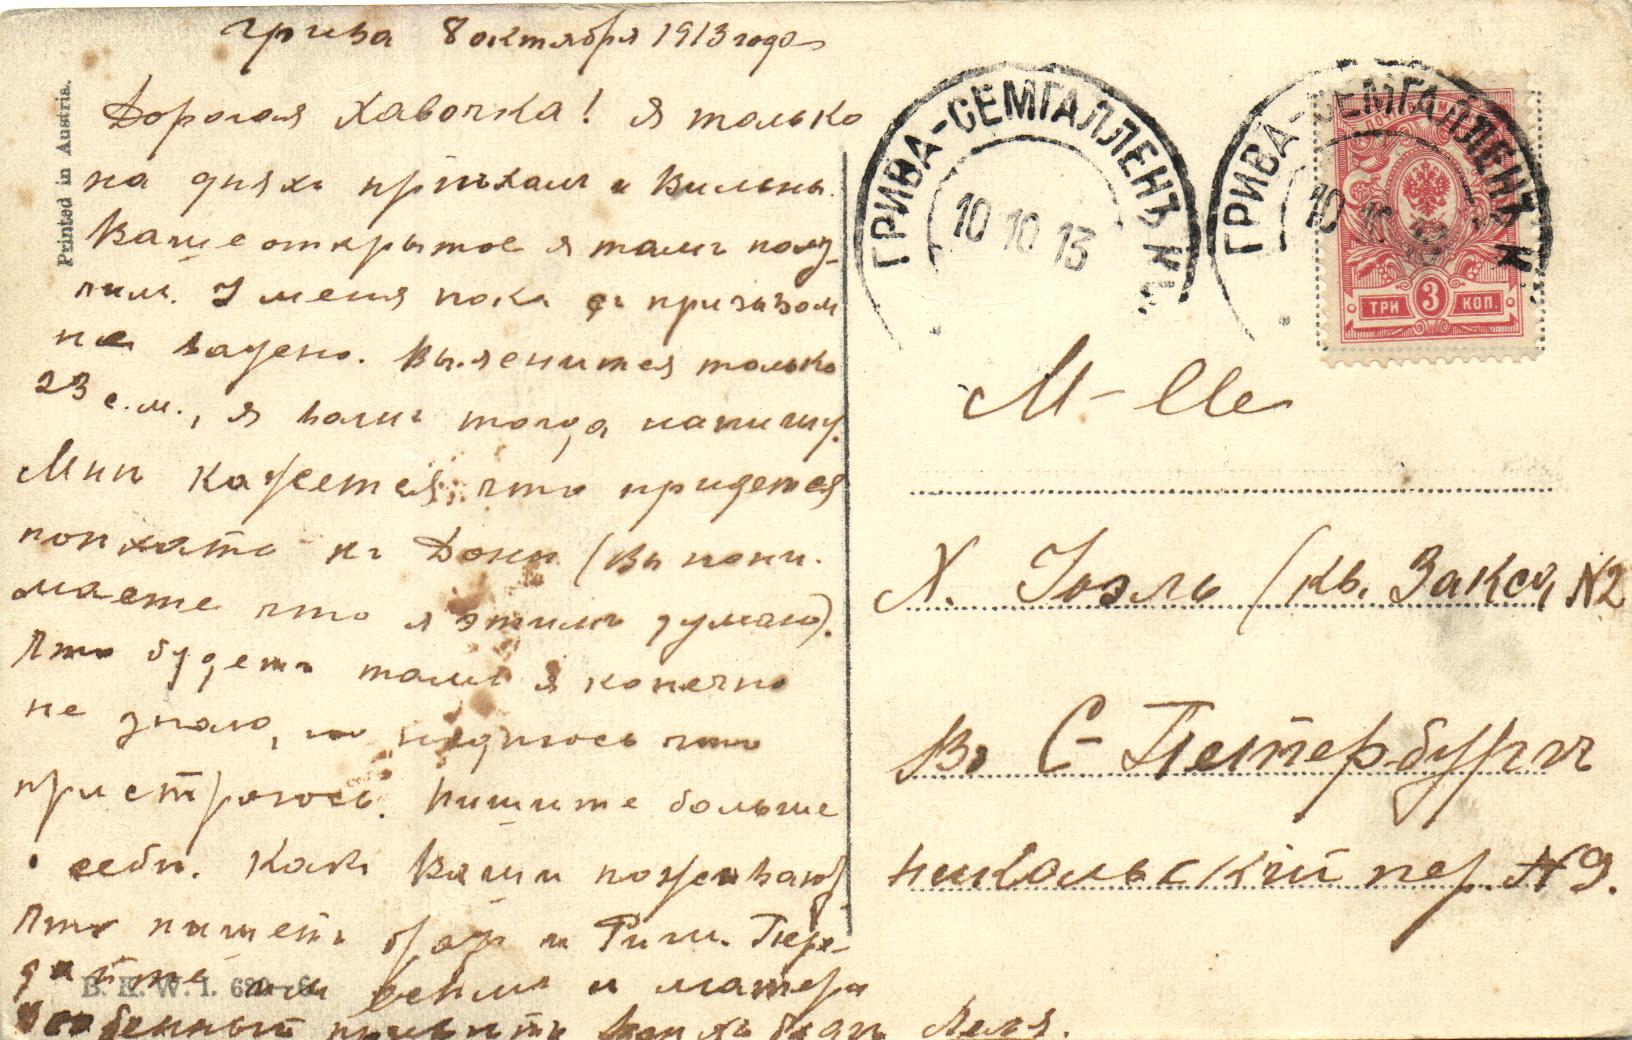 Грива 8 октября 1913 года
Дорогая Хавочка! Я только
на дняхъ пріѣхалъ и Вильны.
Ваше открытое я тамъ полу-
чилъ. У меня пока съ призывом
не
Выяснится только
23 с.м., я вамъ тогда напишу.
Мнѣ кажется, что придется
поѣхать къ Донѣ (Вы пони-
маете что я этимъ думаю).
Что будетъ тамъ я конечно
не знаю, но надѣюсь что
пристроюсь. Пишите больше
о себѣ. Какъ Ваши поживают
Что пишетъ и Пере-
дайте им всѣмъ и матери
Особенный привѣтъ
Printed in Austria.
B. K. W. I.
ГРИВА-СЕМГАЛЛЕНЪ К
10 10 13
ГРИВА-СЕМГАЛЛЕНЪ К
10 10
ТРИ 3 КОП.
M-lle
Х. Іоэль (кв. Закса, №2
Въ С-Петербургѣ
Никольскій пер. №9.